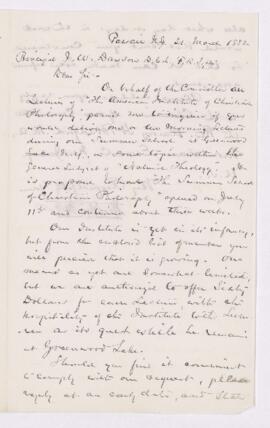 21 March 1882
Principal J. W. Dawson
Dear Sir:-
On behalf of the Committee on
Lectures of "The American Institute of Christian
Philosophy", permit me to inquire if you
would deliver one or two Morning lectures
during our Summer School at Greenwood
Lake on some topic within the
General Subject of "Natural Theology". It
is proposed to have the Summer School
of Christian Philosophy opened on July
11th and continue about three weeks.
Our Institute is yet in its infancy,
but from the enclosed list of members you
will perceive that it is growing. Our
means as yet are somewhat limited,
but we are authorized to offer Sixty
Dollars for each Lecture with the
hospitality of the Institute to the Lecturer
as its guest while he remains
at Greenwood Lake.
Should you find it convenient
to comply with our request, please
reply at an early date, and state